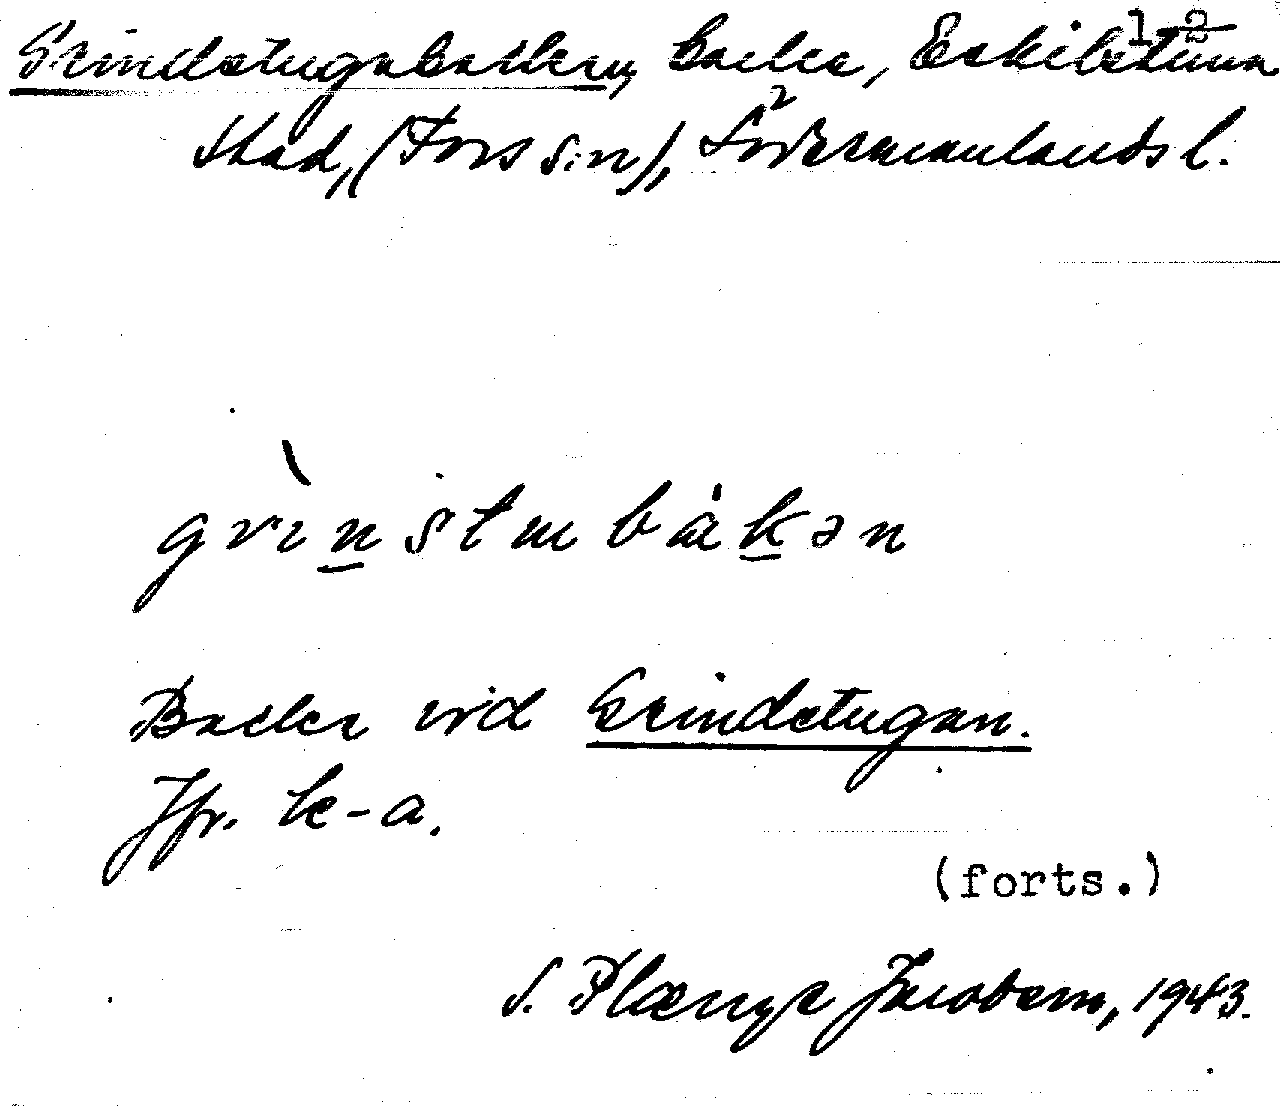 Grindstugubacken, backe, Eskilstuna
12
stad, (Fors sn), Södermanlands l.
2
grìnstubàkən
Backe vid Grindstugan.
Jfr. k-a.
(forts.)
S. Jacobsen, 1943.